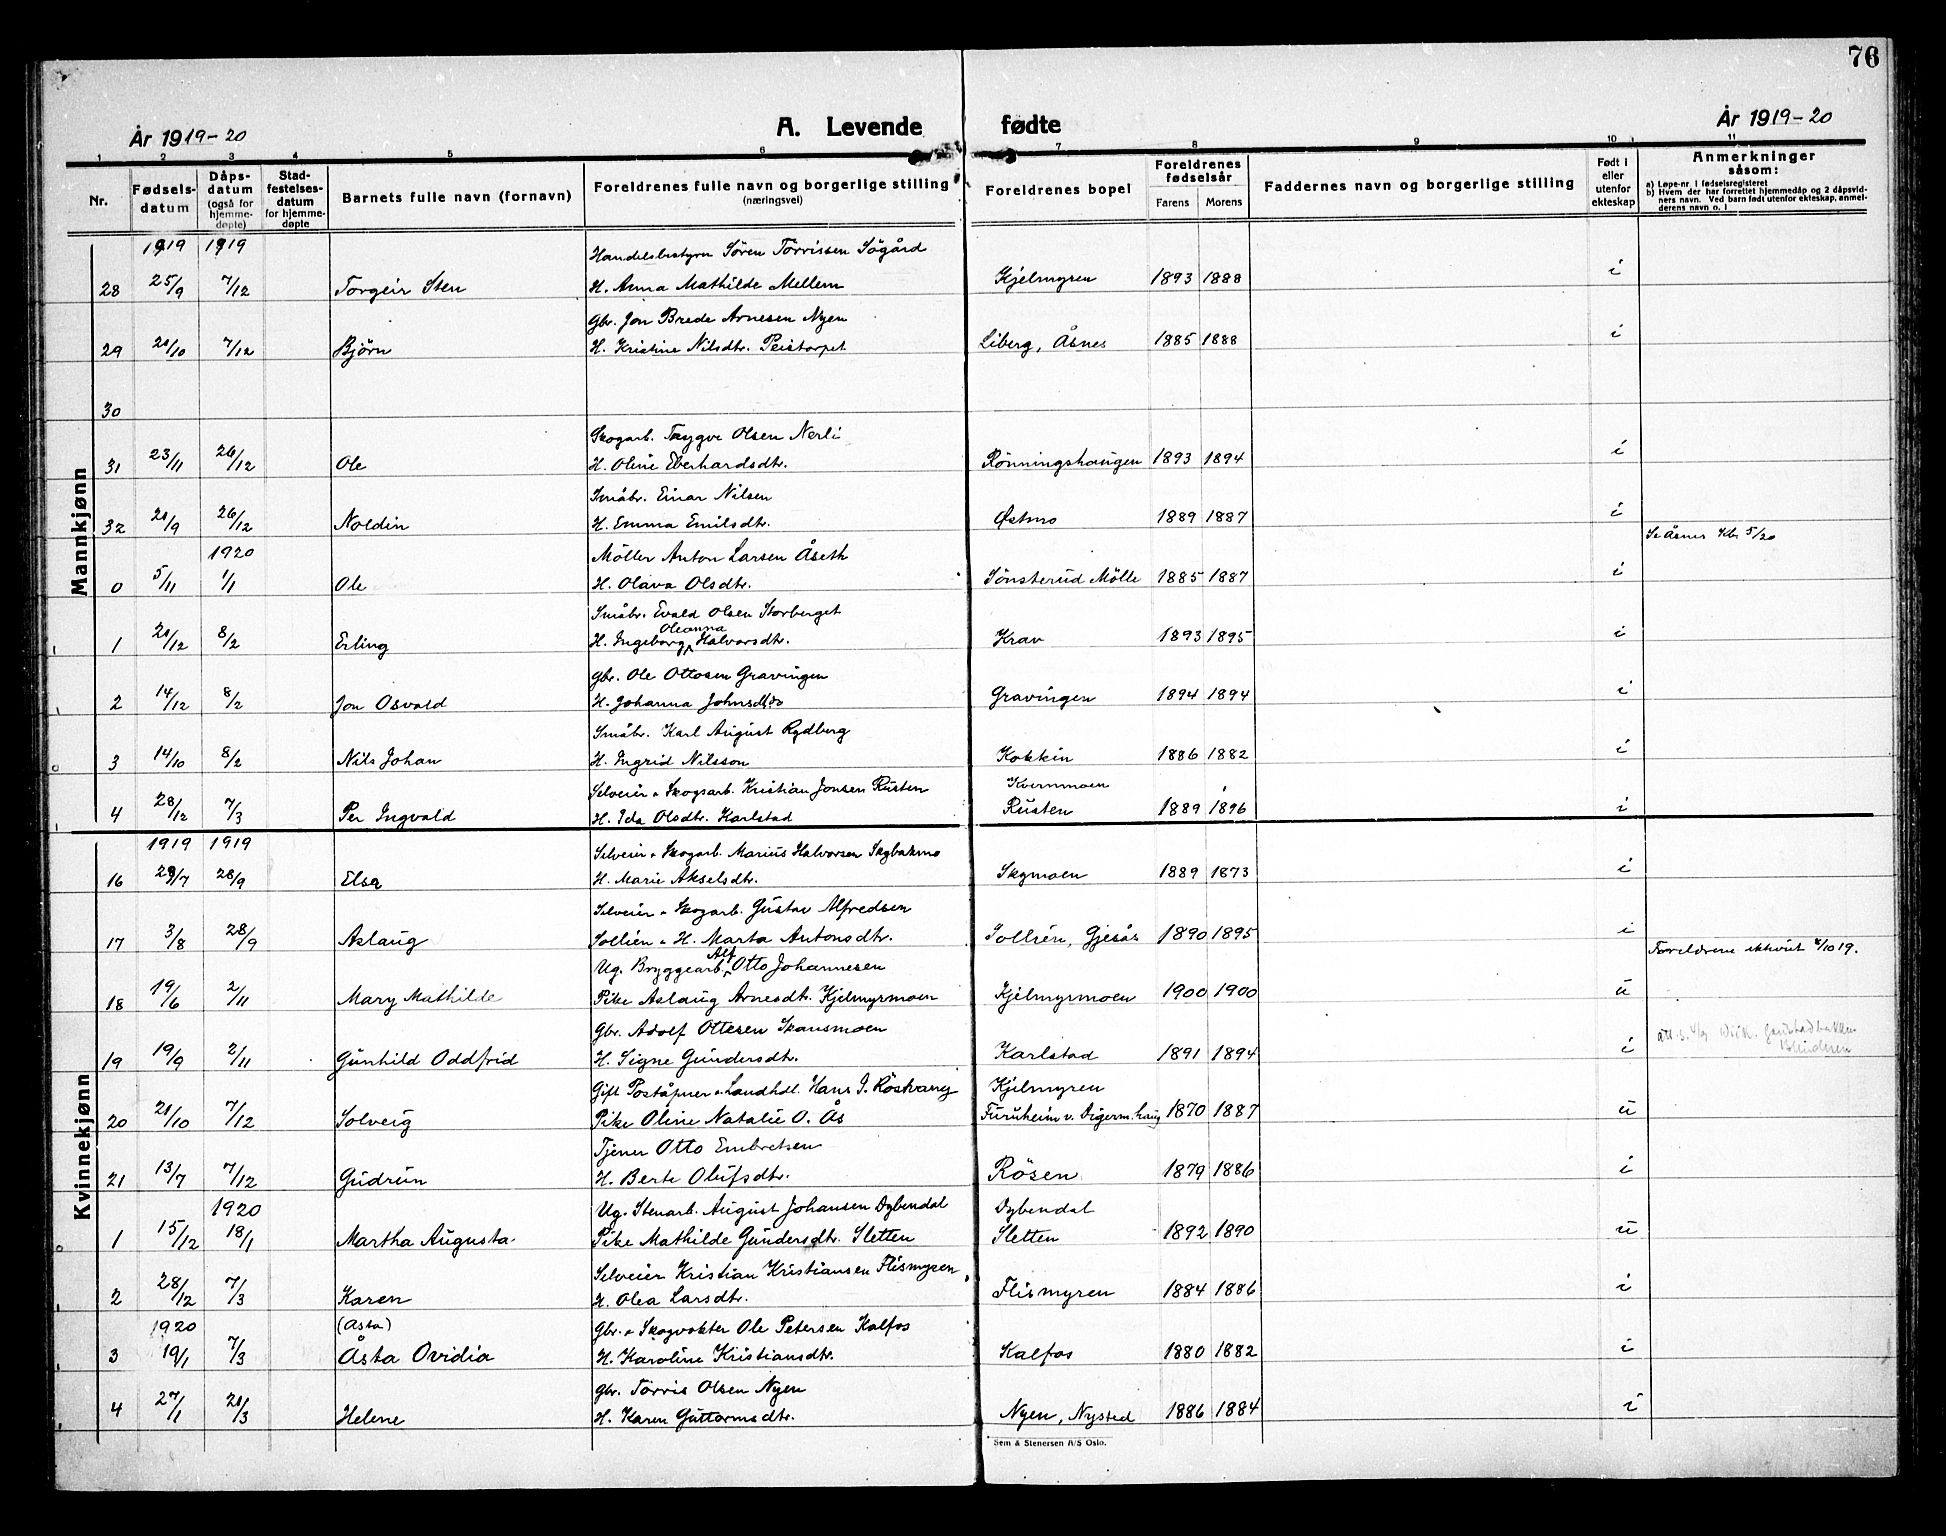 76
År 1919-20 A. Levende fødte År 1919-20
1 2 3 4 5 6 7 8 9 10 11
Nr. Fødsels-datum Dåps-datum (også for hjemme-døpte) Stad-festelses-datum for hjemme-døpte Barnets fulle navn (fornavn) Foreldrenes fulle navn og borgerlige stilling (næringsvei) Foreldrenes bopel Foreldrenes fødselsår Farens Morens Faddernes navn og borgerlige stilling Født i eller utenfor ekteskap Anmerkninger såsom: a) Løpe-nr. i fødselsregisteret b) Hvem der har forrettet hjemmedåp og 2 dåpsvidners navn. Ved barn født utenfor ekteskap, anmelderens navn o. l
Mannkjønn
1919 1919 Handelsbestyrer Sören Törrissen Sögård
28 25/9 7/12 Torgeir Sten H. Anna Mathilde Mellem Kjelmyren 1893 1888 i
Gbr. Jon Brede Arnesen Nyen
29 21/10 7/12 Björn H. Kristine Nilsdtr. Peistorpet Liberg, Åsnes 1885 1888 i
30
Skogarb. Trygve Olsen Nerli
31 23/11 26/12 Ole H. Oline Eberhardsdtr. Rönningshaugen 1893 1894 i
Småbr. Einar Nilsen
32 21/9 26/12 Noldin H. Emma Emilsdtr. Østmo 1889 1887 i
1920 Möller Anton Larsen Åseth Se Åsnes Kb. 5/20
0 5/11 1/1 Ole H. Olava Olsdtr. Sönsterud Mölle 1885 1887 i
Småbr. Evald Olsen Storberget
Oleanna
1 21/12 8/2 Erling H. Ingeborg Halvorsdtr. Krav 1893 1895 i
Gbr. Ole Ottosen Gravingen
2 14/12 8/2 Jon Osvald H. Johanna Johnsdtr. Gravingen 1894 1894 i
Småbr. Karl August Rydberg
3 14/10 8/2 Nils Johan H. Ingrid Nilsson Kokkin 1886 1882 i
Selveier & Skogsarb. Kristian Jonsen Rusten Kvernmoen
4 28/12 7/3 Per Ingvald H. Ida Olsdtr. Karlstad Rusten 1889 1896 i
Kvinnekjønn
1919 1919 Selveier & Skogarb. Marius Halvorsen Skybakmo
16 29/7 28/9 Elsa H. Marie Akselsdtr. Skymoen 1889 1873 i
Selveier & Skogarb. Gustav Alfredsen
17 3/8 28/9 Aslaug Sollien & H. Marta Antonsdtr. Sollien, Gjesås 1890 1895 i
Ug. Bryggearb. Alf Otto Johannesen Foreldrene ekteviet /10 19.
18 19/6 2/11 Mary Mathilde Pike Aslaug Arnesdtr. Kjelmyrmoen Kjelmyrmoen 1900 1900 u
Gbr. Adolf Ottesen Skansmoen
19 19/9 2/11 Gunhild Oddfrid H. Signe Gundersdtr. Karlstad 1891 1894 i
Gift Poståpner & Landhdl. Hans J. Röstvang Kjelmyren
20 21/10 7/12 Solveig Pike Oline Natalie O. Ås Furuheim v. Digerm.haug 1870 1887 u
Tjener Otto Embretsen
21 13/7 7/12 Gudrun H. Berte Olufsdtr. Rösen 1879 1886 i
1920 Ug. Stenarb. August Johansen Dybendal Dybendal
1 15/12 18/1 Martha Augusta Pike Mathilde Gundersdtr. Sletten Sletten 1892 1890 u
Selveier Kristian Kristiansen Flismyren
2 28/12 7/3 Karen H. Olea Larsdtr. Flismyren 1884 1886 i
1920 (Asta) Gbr. & Skogvokter Ole Petersen Kalfos
3 19/1 7/3 Åsta Ovidia H. Karoline Kristiansdtr. Kalfos 1880 1882 i
Gbr. Törris Olsen Nyen
4 27/1 21/3 Helene H. Karen Guttormsdtr. Nyen, Nysted 1886 1884 i
Sem & Stenersen A/S Oslo.